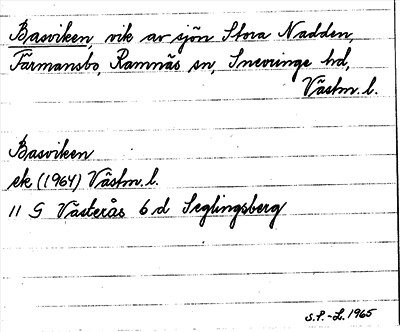 Basviken, vik av sjön Stora Nadden,
Färmansbo, Ramnäs sn, Snevringe hd,
Västm. l.
Basviken
ek (1964) Västm. l.
11 G Västerås 6 d Seglingsberg
S.P.-L. 1965